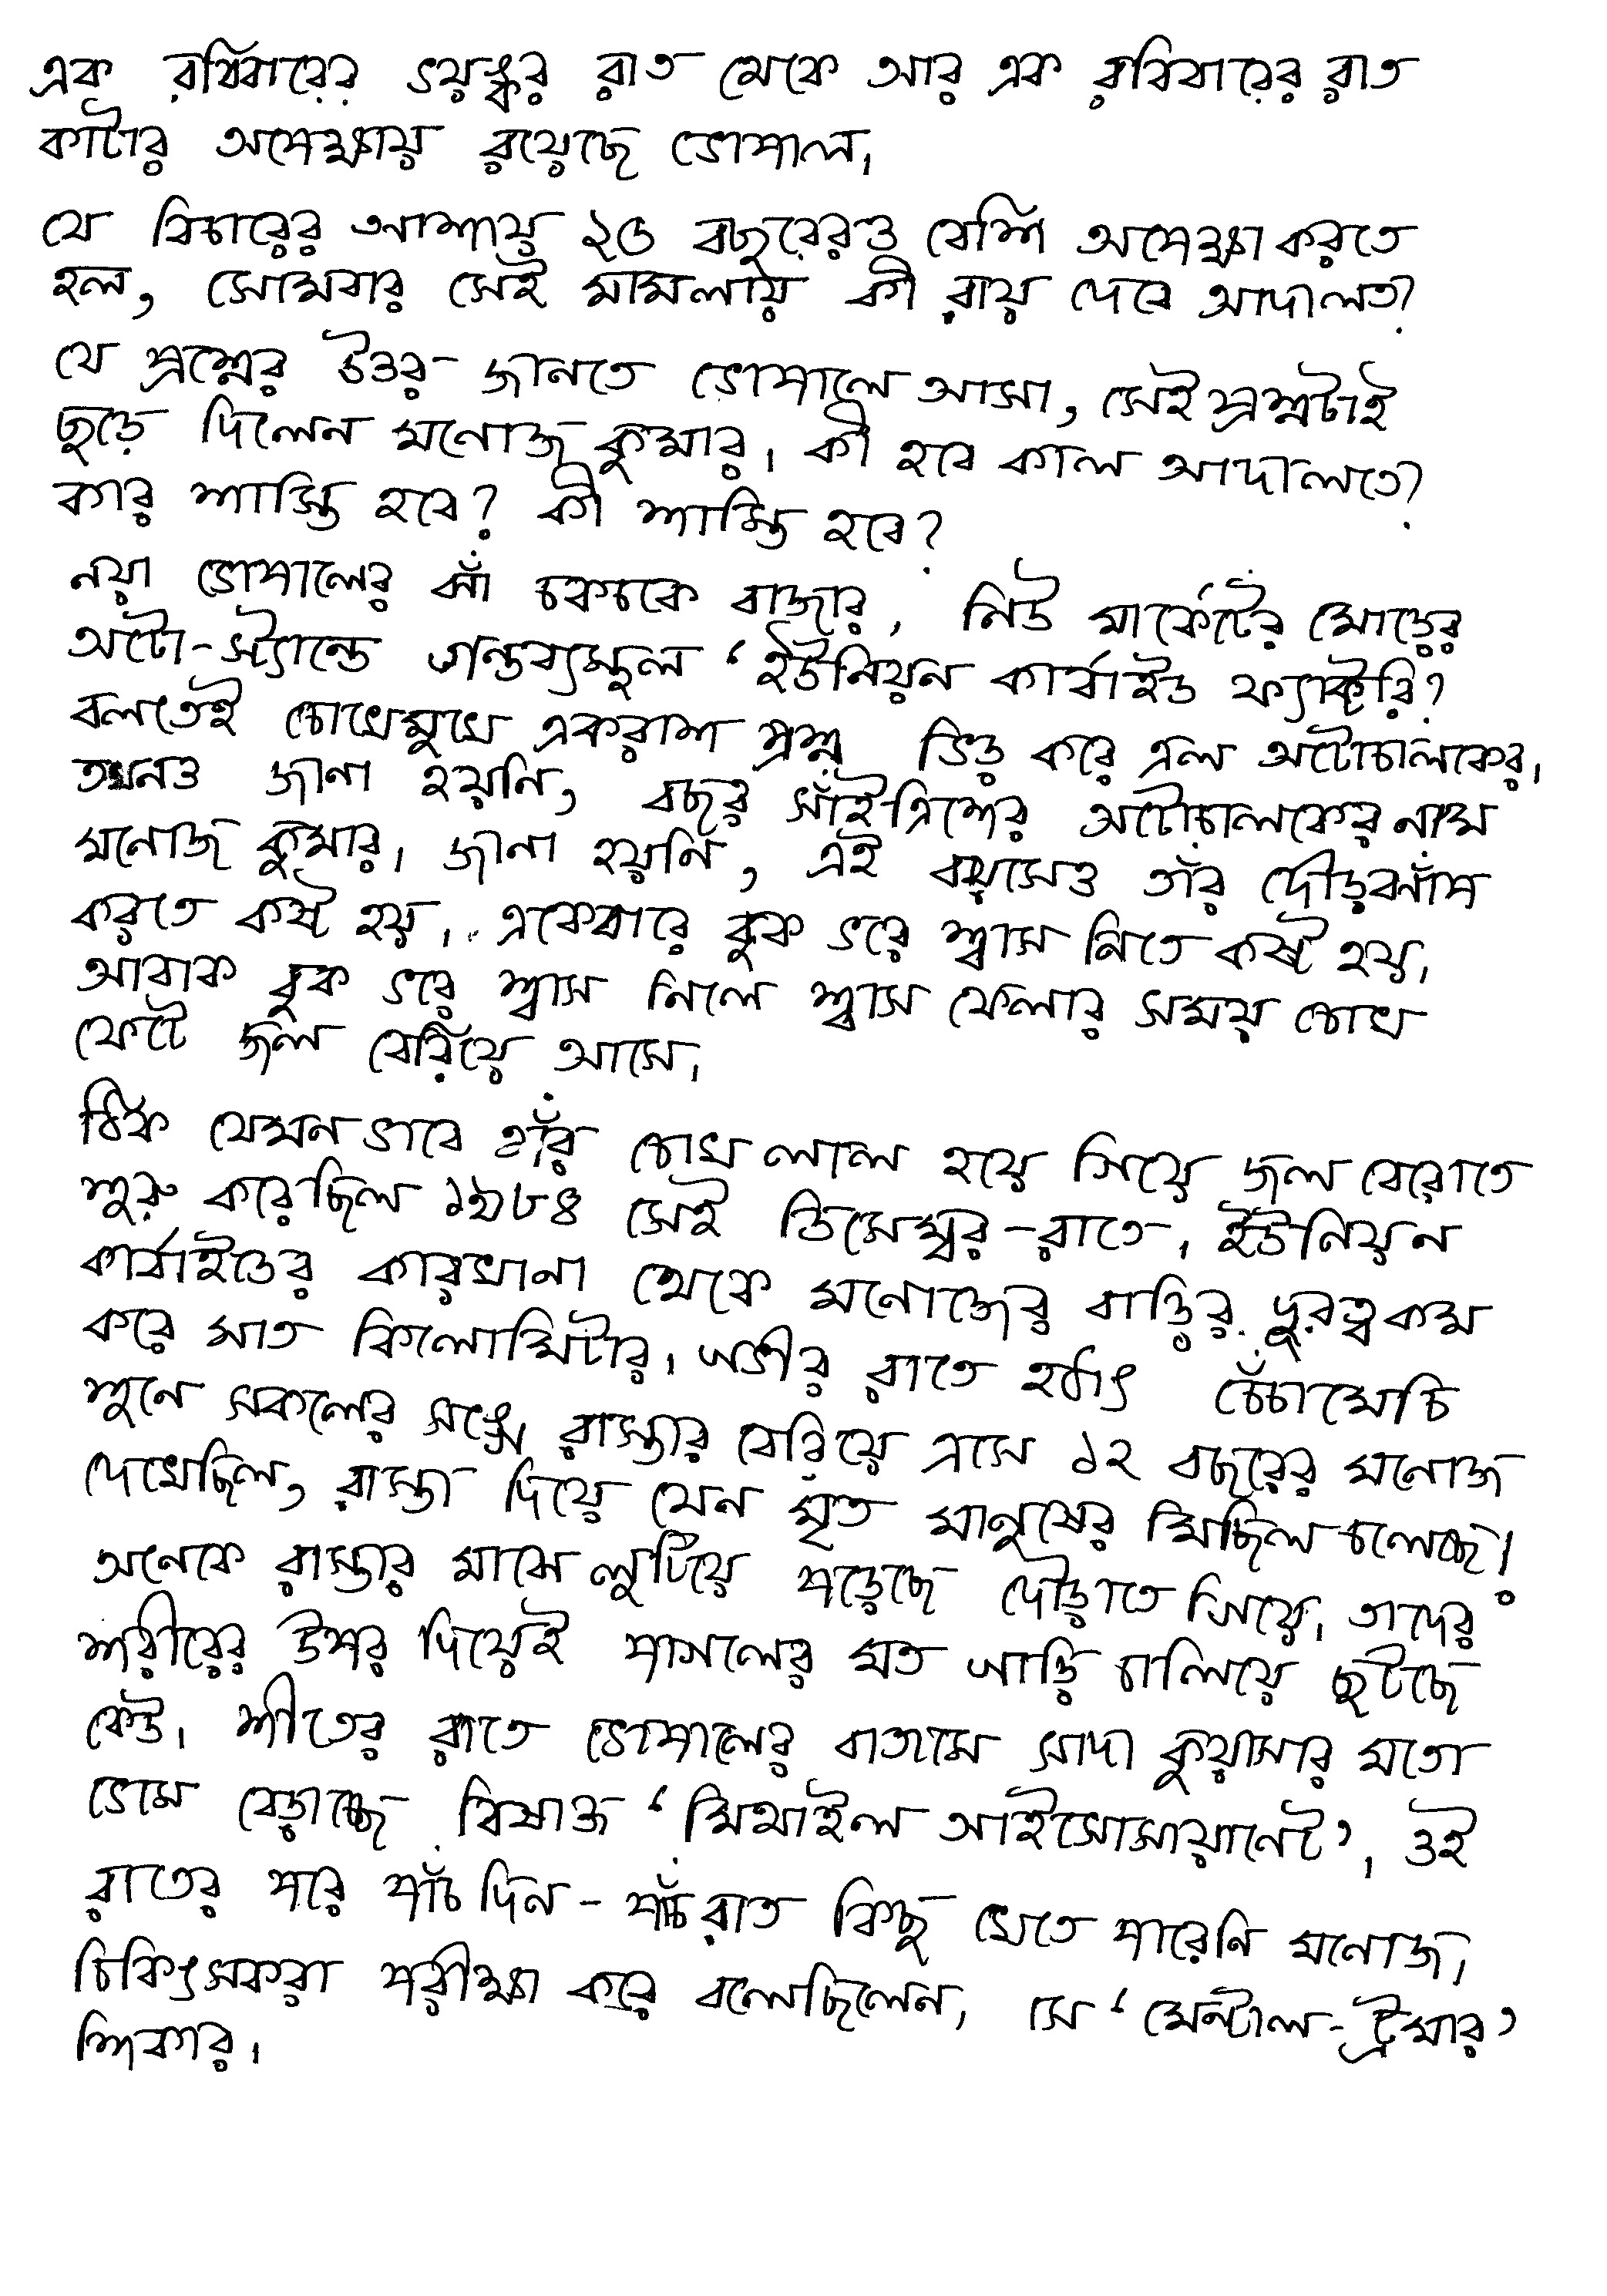 এক রবিবারের ভয়ঙ্কর রাত থেকে আর এক রবিবারের রাত
কাটার অপেক্ষায় রয়েছে ভোপাল।
যে বিচারের আশায় ২৫ বছরেরও বেশি অপেক্ষা করতে
হল, সোমবার সেই মামলায় কী রায় দেবে আদালত?
যে প্রশ্নের উত্তর জানতে ভোপালে আসা, সেই প্রশ্নটাই
ছুড়ে দিলেন মনোজ কুমার। কী হবে কাল আদালতে?
কার শাস্তি হবে? কী শাস্তি হবে?
নয়া ভোপালের ঝাঁ চকচকে বাজার, নিউ মার্কেটের মোড়ের
অটো-স্ট্যান্ডে গন্তব্যস্থল ‘ইউনিয়ন কার্বাইড ফ্যাক্টরি’
বলতেই চোখেমুখে একরাশ প্রশ্ন ভিড় করে এল অটোচালকের।
তখনও জানা হয়নি, বছর সাঁইত্রিশের অটোচালকের নাম
মনোজ কুমার। জানা হয়নি, এই বয়সেও তাঁর দৌড়ঝাঁপ
করতে কষ্ট হয়। একেবারে বুক ভরে শ্বাস নিতে কষ্ট হয়।
আবাক বুক ভরে শ্বাস নিলে শ্বাস ফেলার সময় চোখ
ফেটে জল বেরিয়ে আসে।
ঠিক যেমন ভাবে তাঁর চোখ লাল হয়ে গিয়ে জল বেরোতে
শুরু করেছিল ১৯৮৪ সেই ডিসেম্বর-রাতে। ইউনিয়ন
কার্বাইডের কারখানা থেকে মনোজের বাড়ির দূরত্ব কম
করে সাত কিলোমিটার। গভীর রাতে হঠাৎ চেঁচামেচি
শুনে সকলের সঙ্গে রাস্তার বেরিয়ে এসে ১২ বছরের মনোজ
দেখেছিল, রাস্তা দিয়ে যেন মৃত মানুষের মিছিল চলেছে।
অনেকে রাস্তার মাঝে লুটিয়ে পড়েছে দৌড়াতে গিয়ে। তাদের
শরীরের উপর দিয়েই পাগলের মত গাড়ি চালিয়ে ছুটছে
কেউ। শীতের রাতে ভোপালের বাতাসে সাদা কুয়াসার মতো
ভেসে বেড়াচ্ছে বিষাক্ত ‘মিথাইল আইসোসায়ানেট’। ওই
রাতের পরে পাঁচ দিন-পাঁচ রাত কিছু খেতে পারেনি মনোজ।
চিকিৎসকরা পরীক্ষা করে বলেছিলেন, সে ‘মেন্টাল-ট্রমার’
শিকার।